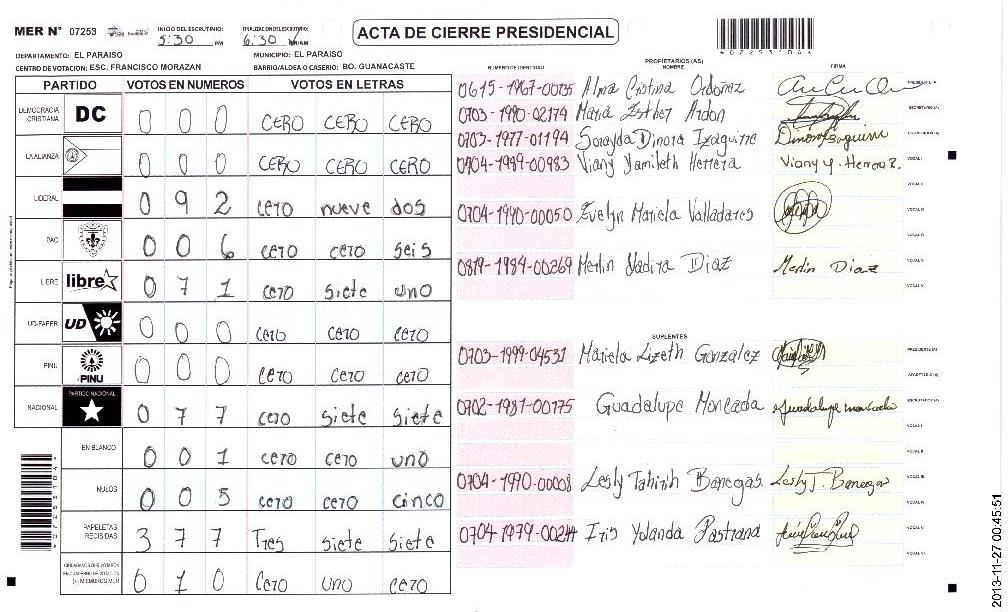 MER N° 07253 INICIO DEL ESCRUTINIO: 5:30 PM FINALIZACION DEL ESCRUTINIO: 6:30 ACTA DE CIERRE PRESIDENCIAL
DEPARTAMENTO: EL PARAISO MUNICIPIO: EL PARAISO
CENTRO DE VOTACION: ESC. FRANCISCO MORAZAN BARRIO/ALDEA O CASERIO: BO. GUANACASTE
PARTIDO VOTOS EN NUMEROS VOTOS EN LETRAS
DEMOCRACIA CRISTIANA DC 0 0 0 CERO CERO CERO
LA ALIANZA 0 0 0 CERO CERO CERO
LIBERAL 0 9 2 cero nueve dos
PAC 0 0 6 cero cero seis
LIBRE libre 0 7 1 cero siete uno
UD-FAPER UD 0 0 0 cero cero cero
PINU PINU 0 0 0 cero cero cero
NACIONAL PARTIDO NACIONAL 0 7 7 cero siete siete
EN BLANCO 0 0 1 cero cero uno
NULOS 0 0 5 cero cero cinco
PAPELETAS RECIBIDAS 3 7 7 Tres siete siete
0 1 0 Cero uno cero
NUMERO DE IDENTIDAD PROPIETARIOS (AS) NOMBRE FIRMA
0615-1967-00735 Alma Cristina Ordoñez PRESIDENTE (A)
0703-1990-02174 Maria Esther Ardon SECRETARIO (A)
0703-1977-01194 Sorayda Dinora Izaguirre
0704-1989-00983 Viany Yamileth Herrera Viany Y. Herrera R. VOCAL I
VOCAL II
0704-1990-00050 Evelyn Mariela Valladares VOCAL III
VOCAL IV
0819-1984-00269 Merlin Yadira Diaz Merlin Diaz VOCAL V
VOCAL VI
SUPLENTES
0703-1999-04531 Mariela Lizeth Gonzalez PRESIDENTE (A)
SECRETARIO (A)
0902-1987-00175 Guadalupe Moncada Guadalupe moncada ESCRUTADOR (A)
VOCAL I
VOCAL II
0704-1990-00008 Lesly Tahirih Banegas Lesly T. Banegas VOCAL III
VOCAL IV
0704-1979-00244 Iris Yolanda Pastrana VOCAL V
VOCAL VI
2013-11-27 00:45:51